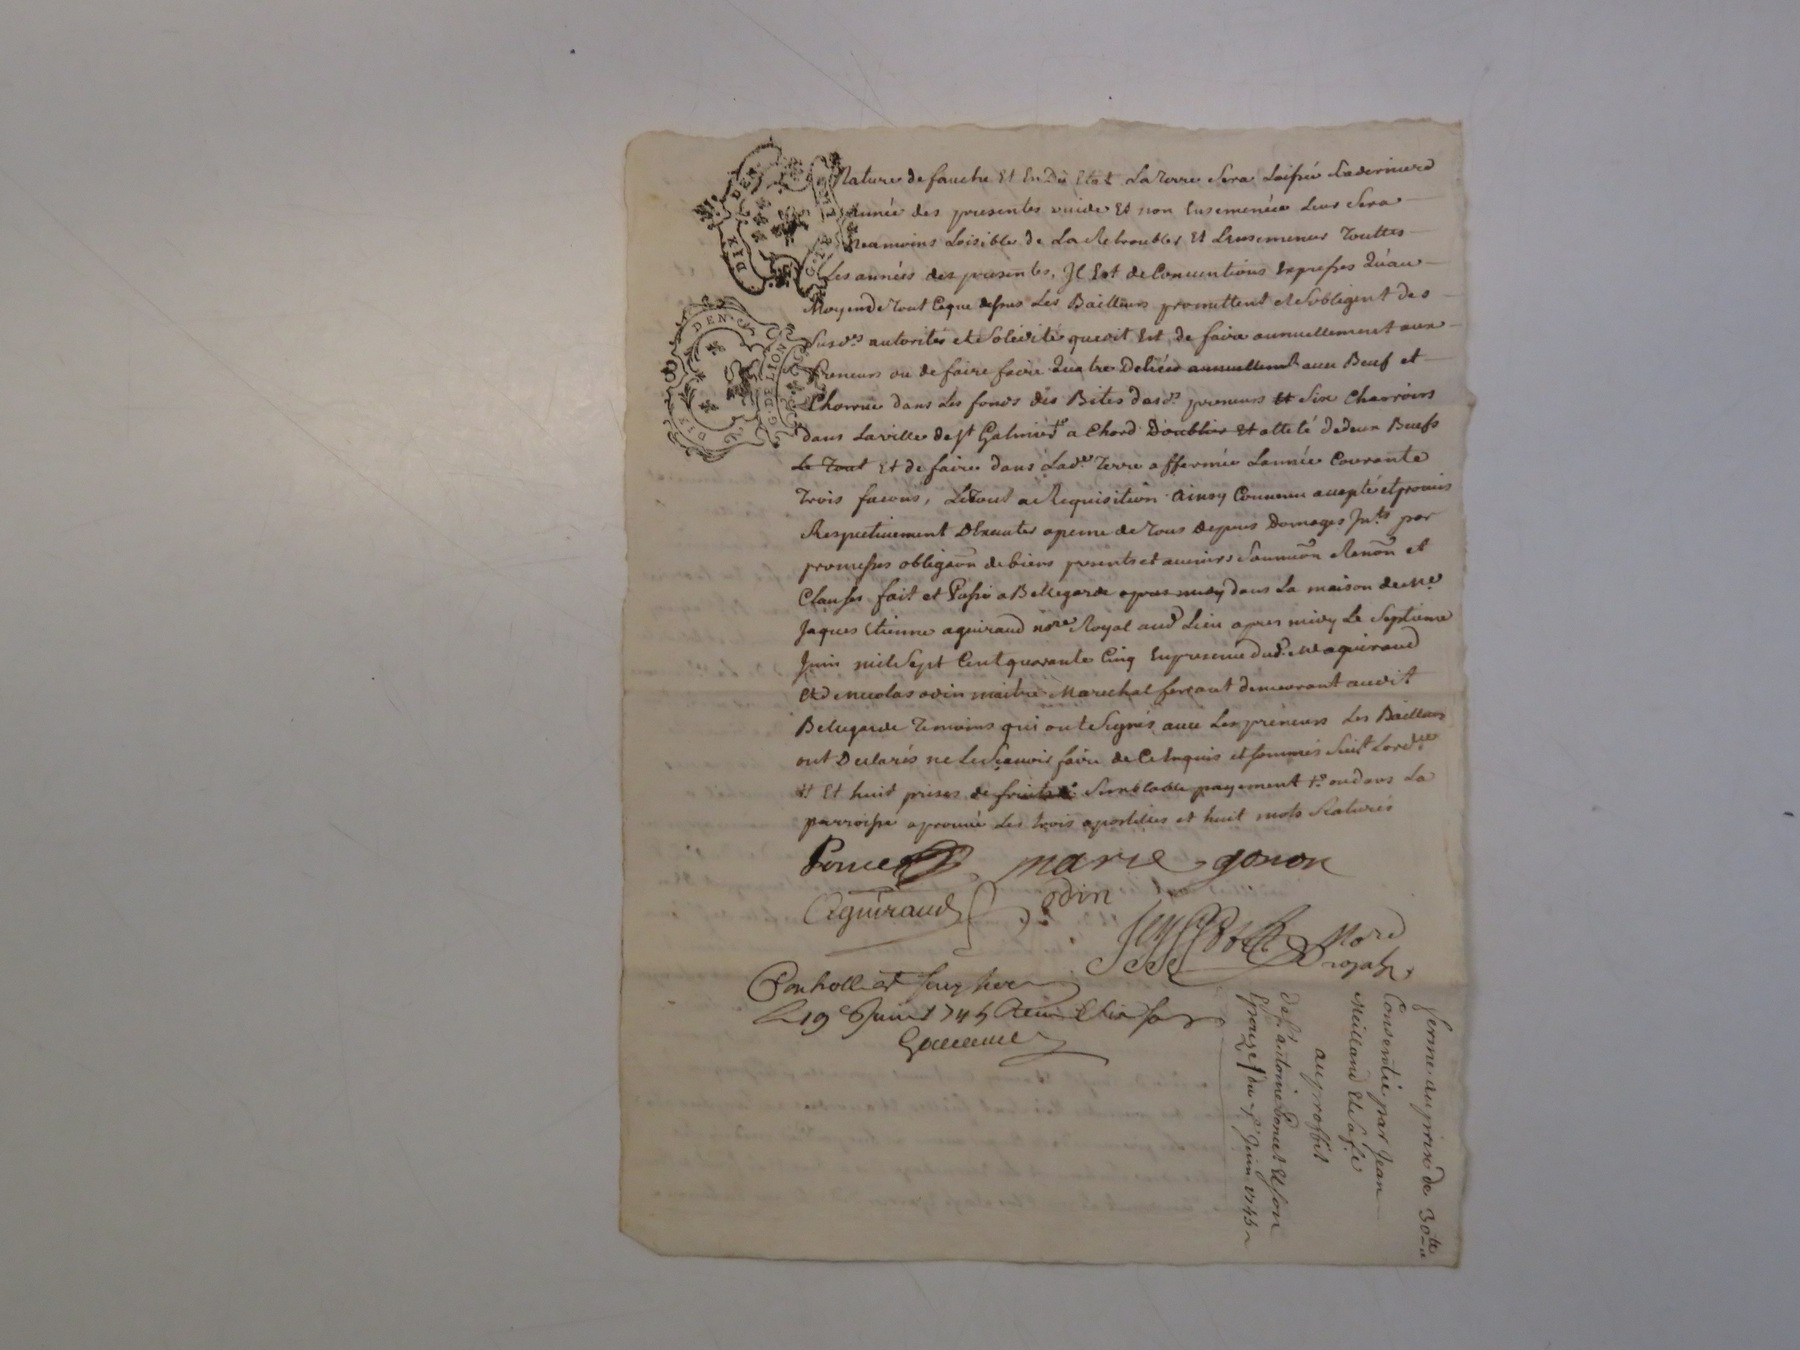 Nature de fauche Et En Du Etat La Terre Sera Laissée Laderniere
Année des presentes vuide Et non Ensemencée Leur Sera
Neamoins Loisible de La Retroubler Et Lensemencer Touttes
Les années des presentes, Il Est de Conventions Expresses Quau
Moyen de Tout Ceque dessus Les Bailleurs promettent et Sobligent des
Susd.es autorités et Solidité quesoit Est de faire annuellement aux
Preneurs ou de faire faire Quatre annuellement avec Beuf et
Charrue dans Les fonds des Bites dasd.s preneurs et Six Charrois
dans La ville de St Galmier a Chard Doublier Et attelé dedeux Beufs
Le Tout Et de faire dans Lad.e Terre affermée Lannée Courante
Trois facons, Le Tout a Requisition Ainsy Convenu accepté et promis
Respectivement DExecuter apeine de Tous Depens Domages Int.ts par
promesses obligaon de biens presents et avenirs Soumion Renon et
Clauses fait et Passé a Bellegarde apres midy dans La maison de Me
Jaques Etienne aguiraud nore Royal aud Lieu apres midy Le Septieme
Juin mil Sept Cent quarante Cinq En presence dud. Me aguiraud
Et Nicolas odin maitre Marechal ferrant demeurant audit
Bellegarde Temoins qui ont Signés avec Les preneurs Les Bailleurs
ont Declarés ne Le Scavoir faire de Ce Enquis et Sommés Suiv.t Lord.ce
Et huit prises de Semblable payement ou dans La
parroisse aprouvé Les trois apostilles et huit mots Raturés
Poncet marie gonon
Aguiraud odin
Nore
royal
Con
Le 19 Juin 1745
Ferme au prix de 30tt
Consentie par Jean
Meilland Et Sa fe
au proffit
de Sr antoine Poncet Et Son
Epouze du 7e Juin 1745
DIX DEN
G. DE LION
DIX DEN
G. DE LION